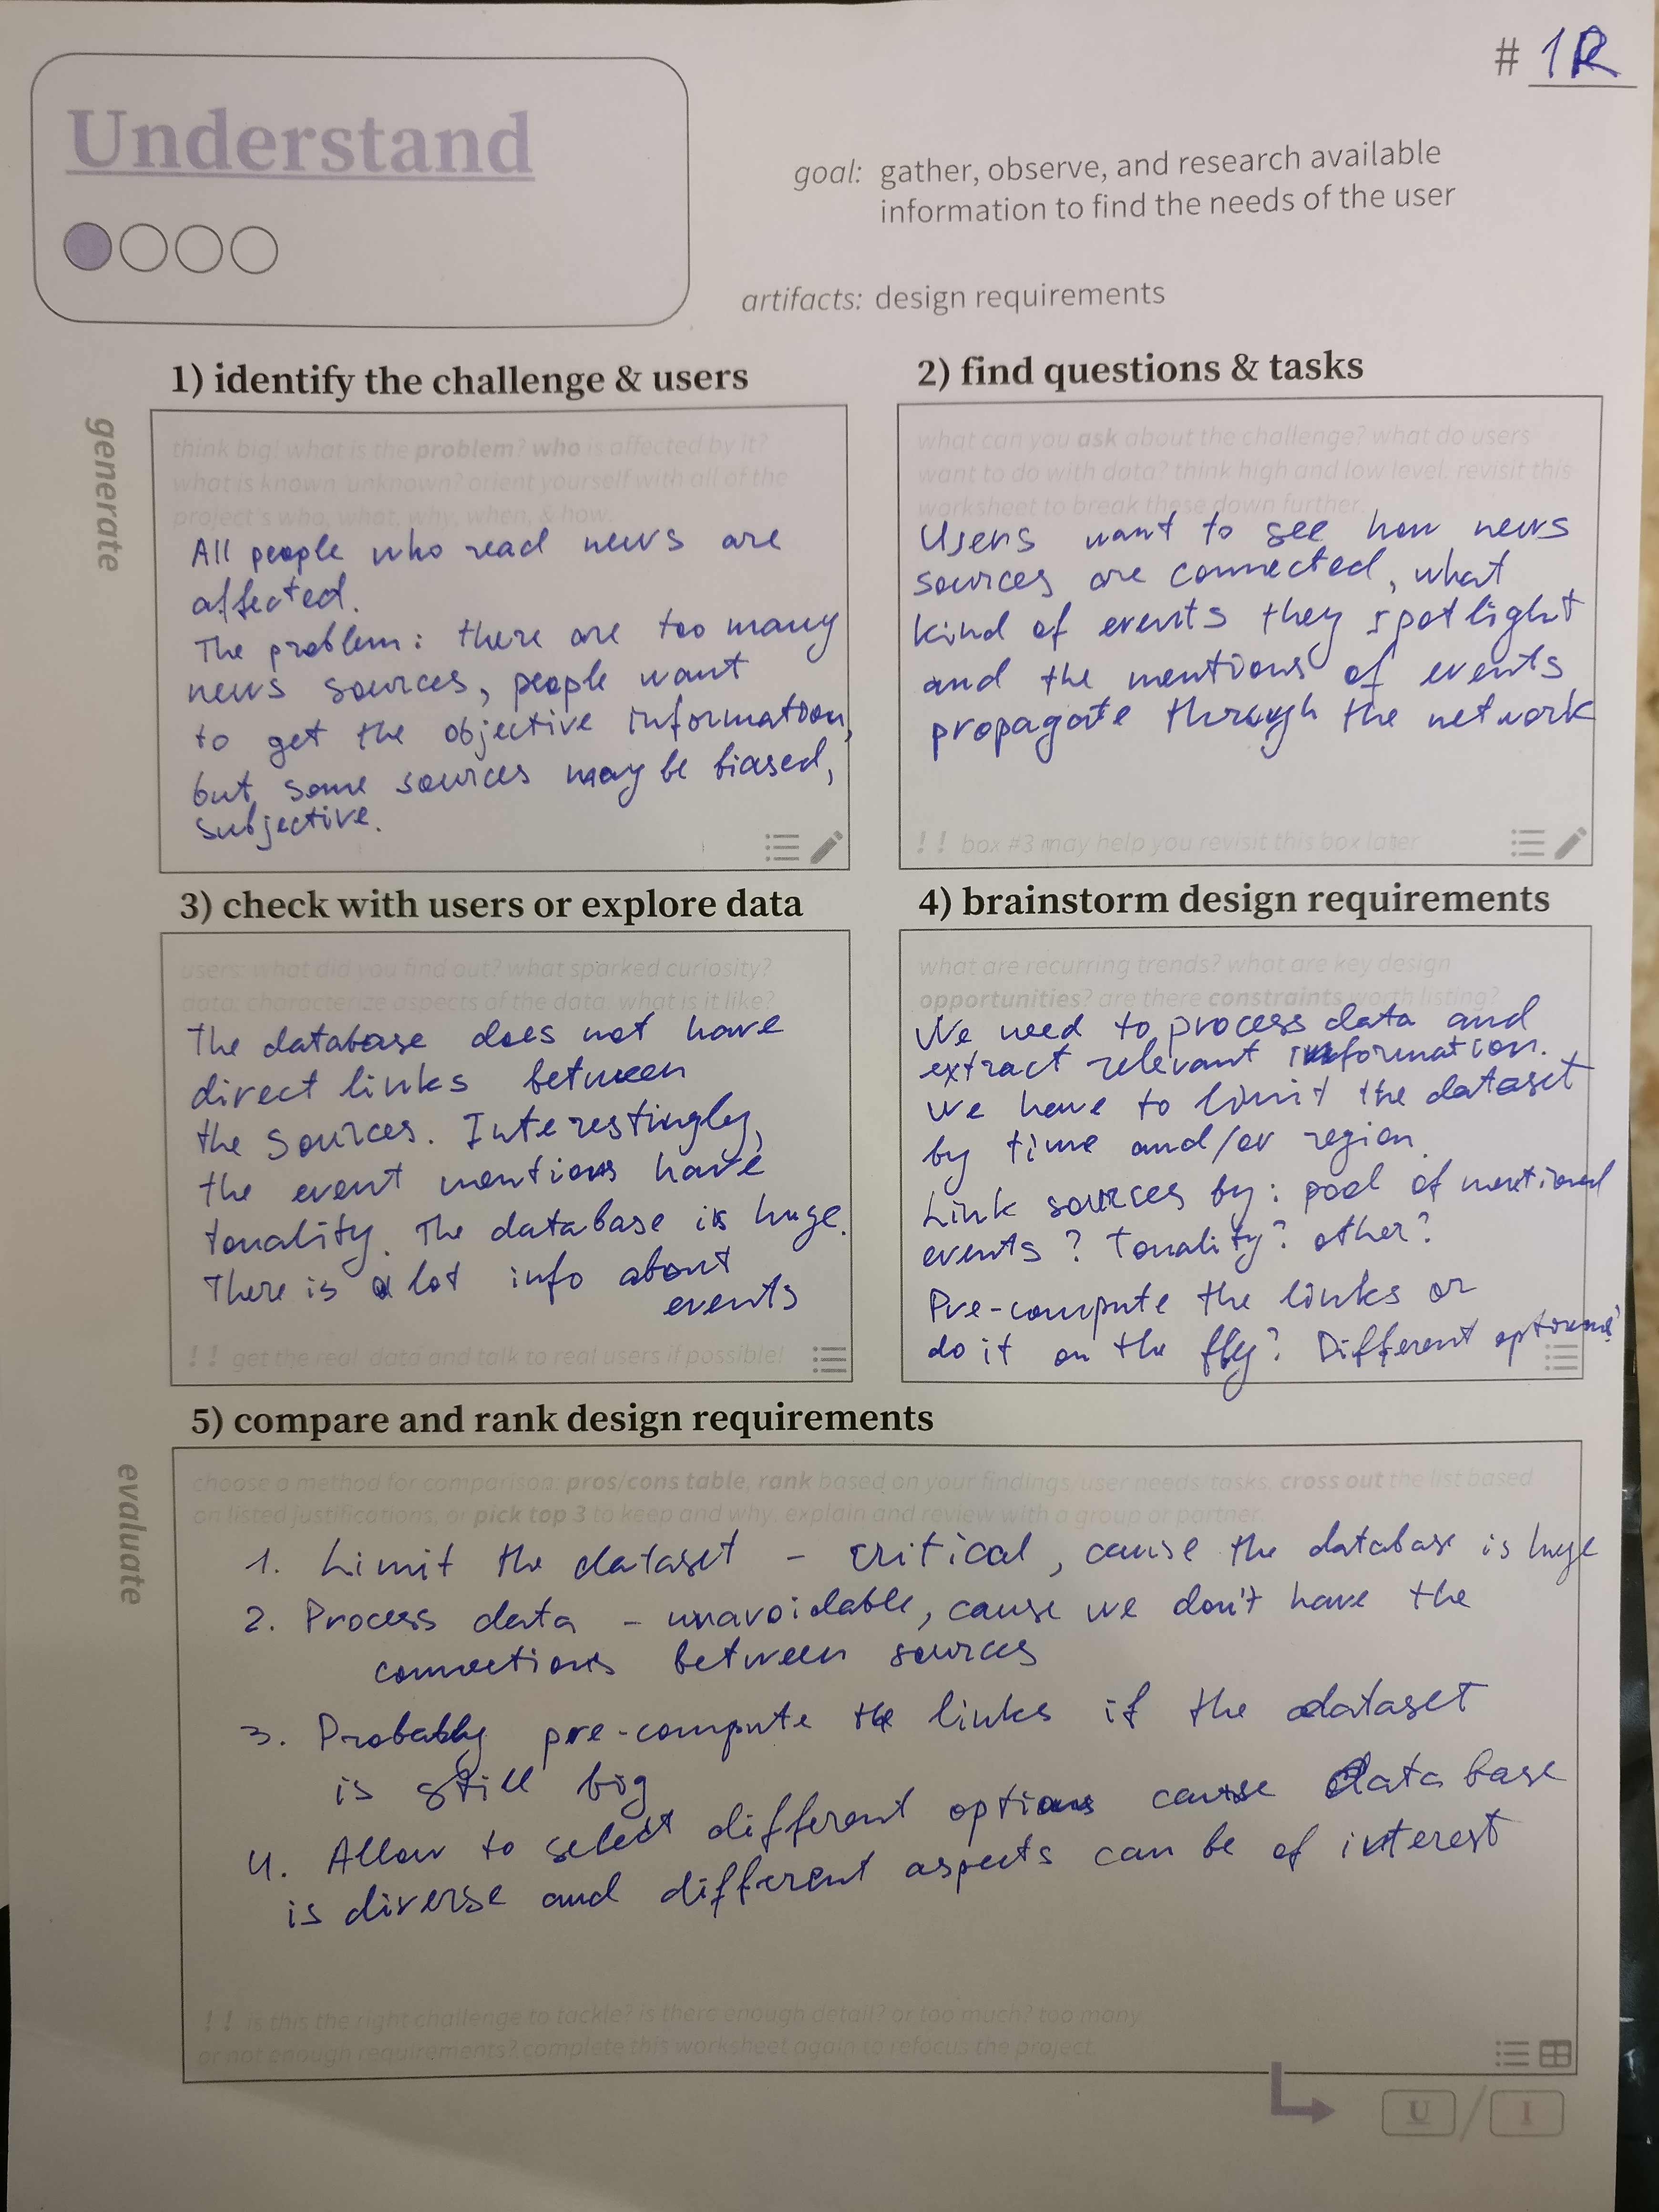 # 1R
Understand
goal: gather, observe, and research available
information to find the needs of the user
artifacts: design requirements
generate
1) identify the challenge & users
think big! what is the problem? who is affected by it?
what is known unknown? orient yourself with all of the
project's who, what, why, when, & how.
All people who read news are
affected.
The problem: there are too many
news sources, people want
to get the objective information,
but some sources may be biased,
subjective.
2) find questions & tasks
what can you ask about the challenge? what do users
want to do with data? think high and low level. revisit this
worksheet to break these down further.
Users want to see how news
sources are connected, what
kind of events they spotlight
and the mentions of events
propagate through the network
!! box #3 may help you revisit this box later
3) check with users or explore data
users: what did you find out? what sparked curiosity?
data: characterize aspects of the data. what is it like?
The database does not have
direct links between
the sources. Interestingly,
the event mentions have
tonality. The database is huge.
There is a lot info about
events
!! get the real data and talk to real users if possible!
4) brainstorm design requirements
what are recurring trends? what are key design
opportunities? are there constraints worth listing?
We need to process data and
extract relevant information.
We have to limit the dataset
by time and/or region.
Link sources by: pool of mentioned
events? Tonality? other?
Pre-compute the links or
do it on the fly? Different options?
evaluate
5) compare and rank design requirements
choose a method for comparison: pros/cons table, rank based on your findings/user needs/tasks, cross out the list based
on listed justifications, or pick top 3 to keep and why. explain and review with a group or partner.
1. Limit the dataset - critical, cause the database is huge
2. Process data - unavoidable, cause we don't have the
connections between sources
3. Probably pre-compute the links if the dataset
is still big
4. Allow to select different options cause database
is diverse and different aspects can be of interest
!! is this the right challenge to tackle? is there enough detail? or too much? too many
or not enough requirements? complete this worksheet again to refocus the project.
U / I